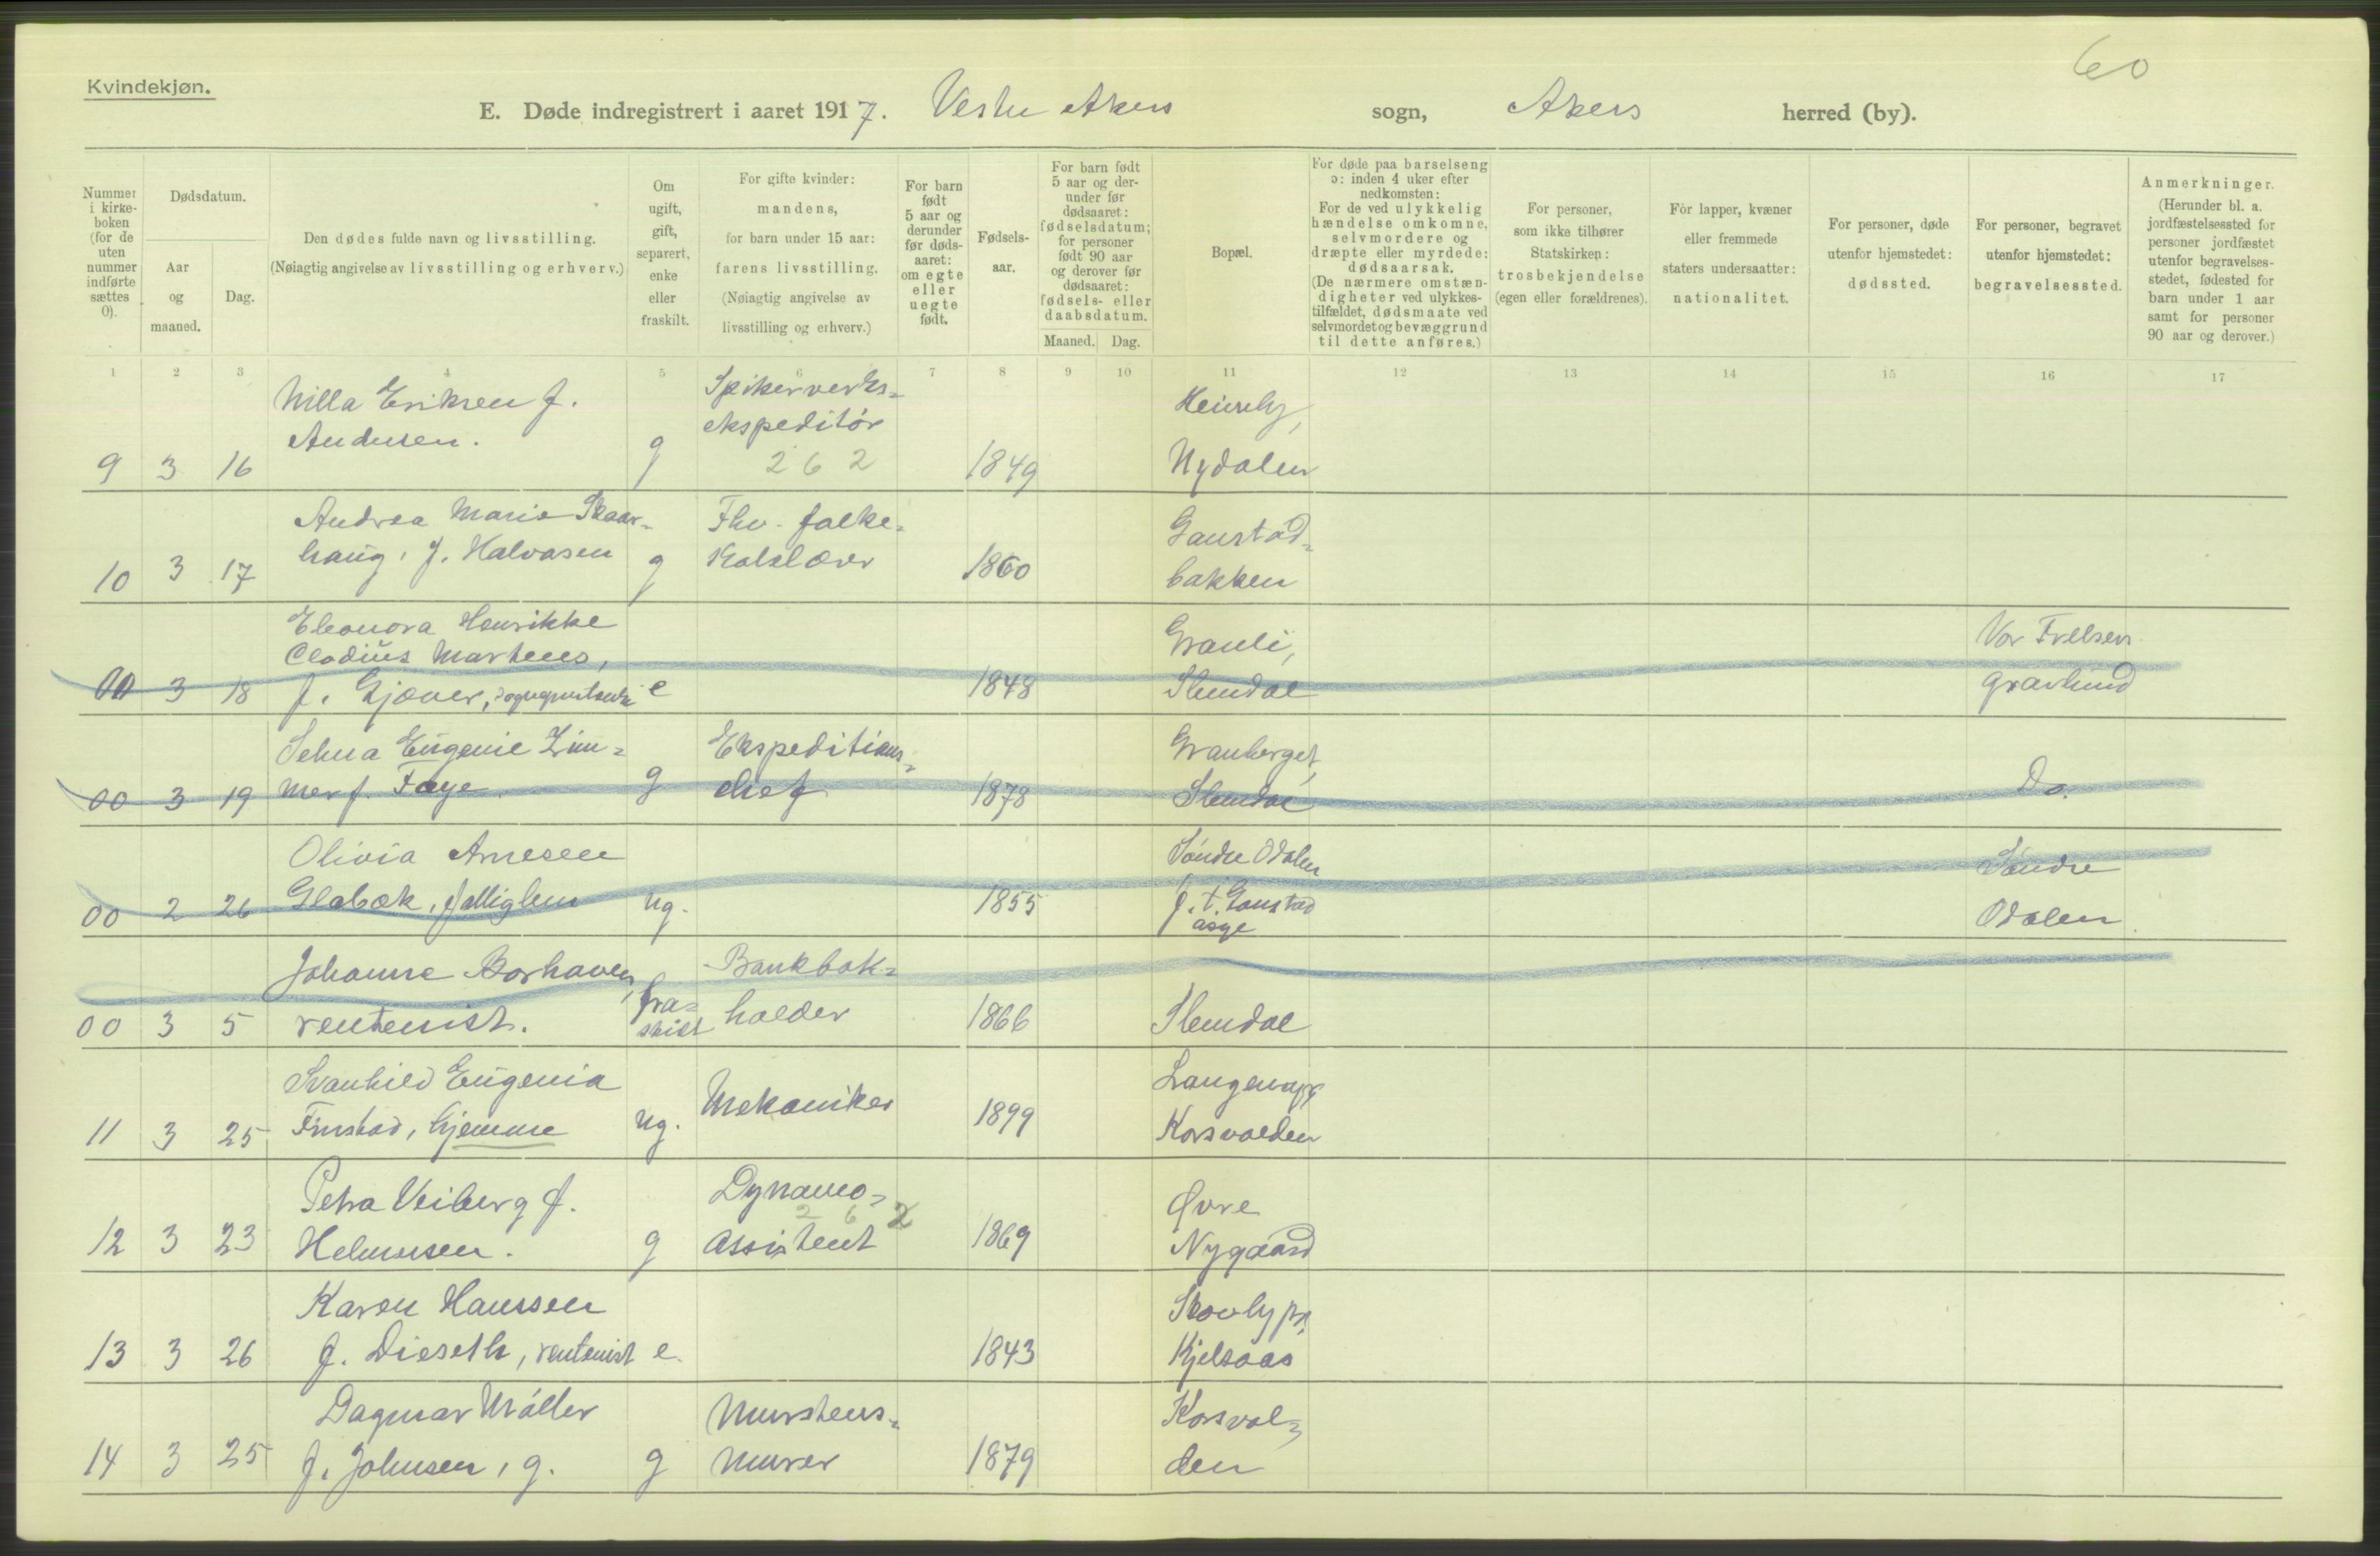 60
Kvindekjøn.
E. Døde indregistrert i aaret 1917. Vestre Akers sogn, Akers herred (by).
Nummer i kirke-boken (for de uten nummer indførte sættes 0).
Dødsdatum.
Aar og maaned.
Dag.
Den dødes fulde navn og livsstilling.
(Nøiagtig angivelse av livsstilling og erhverv.)
Om ugift, gift, separert, enke eller fraskilt.
For gifte kvinder: mandens, for barn under 15 aar: farens livsstilling. (Nøiagtig angivelse av livsstilling og erhverv.)
For barn født 5 aar og derunder før døds-aaret: om egte eller uegte født.
Fødsels-aar.
For barn født 5 aar og der-under før dødsaaret: fødselsdatum; for personer født 90 aar og derover før dødsaaret: fødsels- eller daabsdatum.
Maaned. Dag.
Bopæl.
For døde paa barselseng ɔ: inden 4 uker efter nedkomsten: For de ved ulykkelig hændelse omkomne, selvmordere og dræpte eller myrdede: dødsaarsak. (De nærmere omstæn-digheter ved ulykkes-tilfældet, dødsmaate ved selvmordet og bevæggrund til dette anføres.)
For personer, som ikke tilhører Statskirken: trosbekjendelse (egen eller forældrenes).
For lapper, kvæner eller fremmede staters undersaatter: nationalitet.
For personer, døde utenfor hjemstedet: dødssted.
For personer, begravet utenfor hjemstedet: begravelsessted.
Anmerkninger. (Herunder bl. a. jordfæstelsessted for personer jordfæstet utenfor begravelses-stedet, fødested for barn under 1 aar samt for personer 90 aar og derover.)
1 2 3 4 5 6 7 8 9 10 11 12 13 14 15 16 17
Milla Eriksen f. Spikerverks- Heimly,
Andersen. ekspeditör
9 3 16 g 262 1849 Nydalen
Andrea Marie Skaar- Fhv. falke- Gaustad-
haug, f. Halvasen
10 3 17 g 1860 bakken
Eleonora Henrikke Granli, Vor Frelsers
Clodius Martens,
00 3 18 f. Gjæver, e 1848 Slemdal gravlund
Selma Eugenie Zim- Ekspeditions- Granberget,
00 3 19 mer f. Faye g chef 1878 Slemdal Do.
Olivia Arnesen Söndre Odalen Söndre
00 2 26 Glabæk, fattiglem ug. 1855 f. t. Gaustad Odalen
asyl
Johanne Borhaven, Bankbok-
00 3 5 rentenist. fra-skilt holder 1866 Slemdal
Svanhild Eugenia
11 3 25 Finstad, hjemme ug. Mekaniker 1899 Korsvolden
Petra Veiberg f. Dynamo- Øvre
262
12 3 23 Helmersen. g assistent 1869 Nygaard
Karen Hanssen Skovly pr.
13 3 26 f. Dieseth, rentenist e. 1843 Kjelsaas
Dagmar Möller Murstens- Korsvol-
14 3 25 f. Johnsen, g. g murer 1879 den